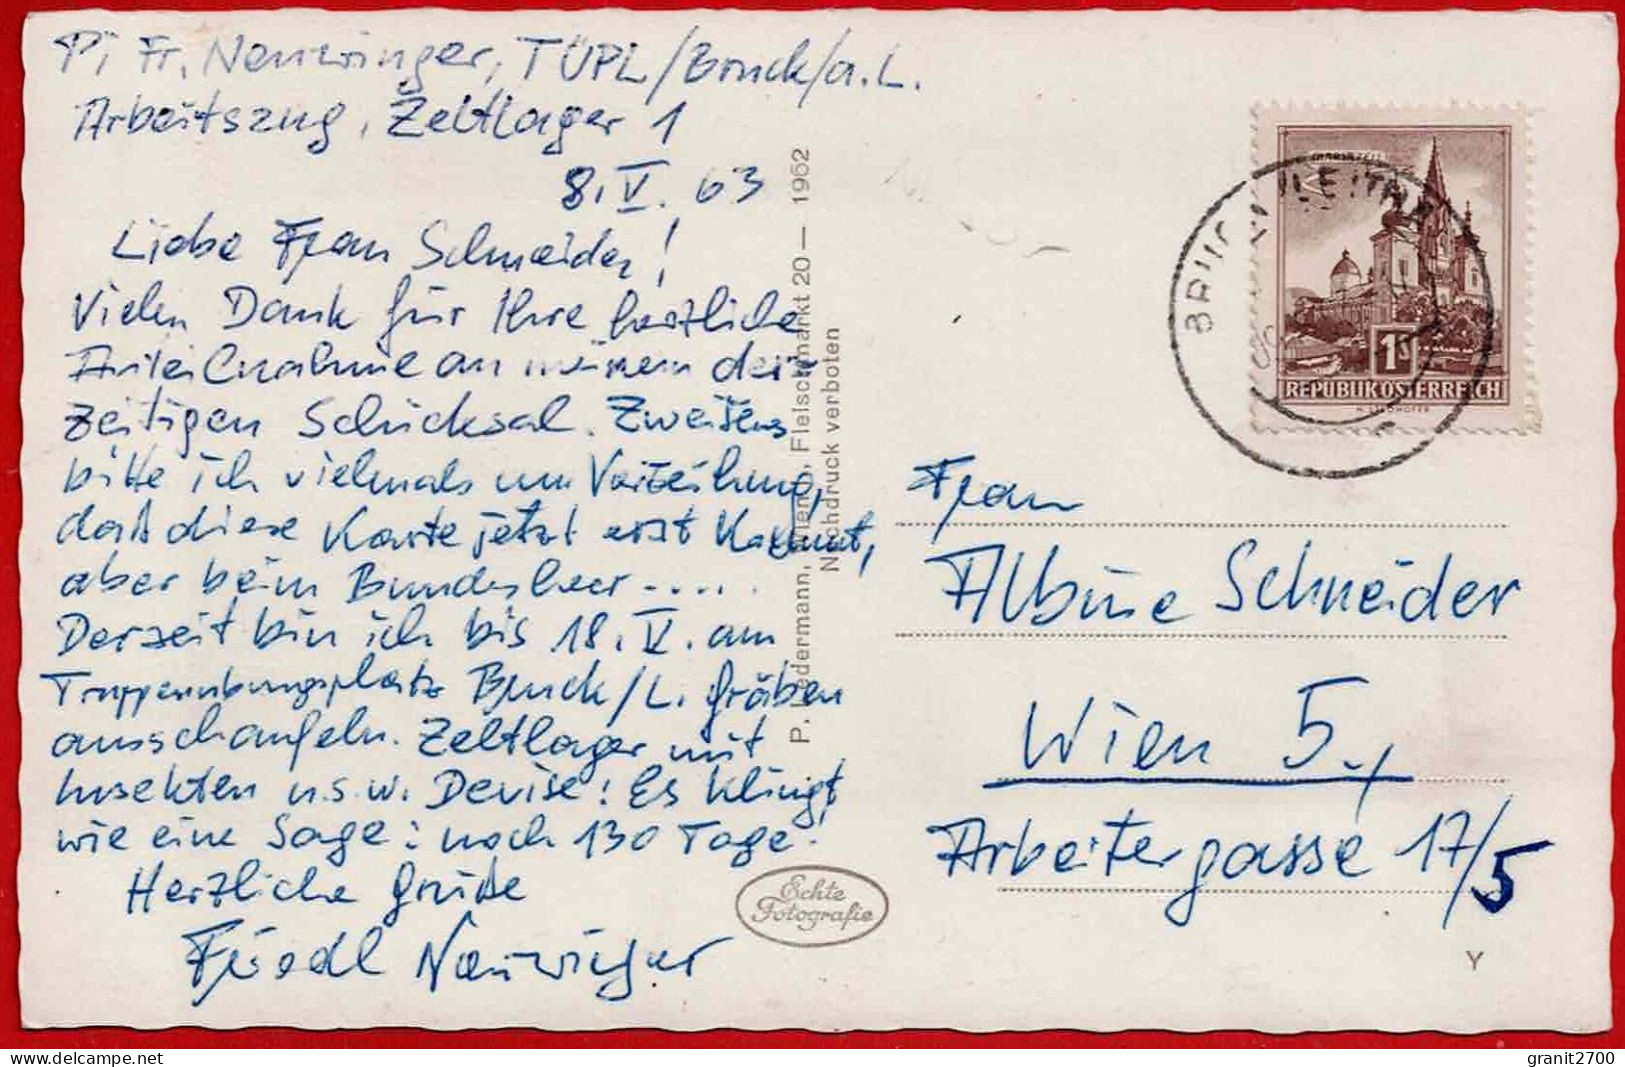 Pi Fr. Neuwinger, TÜPL/Bruck/a.L.
Arbeitszug, Zeltlager 1
8. V. 63
Liebe Frau Schneider!
Vielen Dank für Ihre herzliche
Anteilnahme an meinem der-
zeitigen Schicksal. Zweitens
bitte ich vielmals um Verzeihung,
daß diese Karte jetzt erst kommt,
aber beim Bundesheer ....
Derzeit bin ich bis 18. V. am
Truppenübungsplatz Bruck/L. Gräben
ausschaufeln. Zeltlager mit
Insekten u.s.w. Devise: Es klingt
wie eine Sage: noch 130 Tage.
Herzliche Grüße
Friedl Neuwinger
P. Ledermann, Wien I, Fleischmarkt 20 — 1962
Nachdruck verboten
Echte
Fotografie
MARIAZELL
1S
REPUBLIK ÖSTERREICH
BRUCK
Frau
Albine Schneider
Wien 5.,
Arbeitergasse 17/5
Y
granit2700